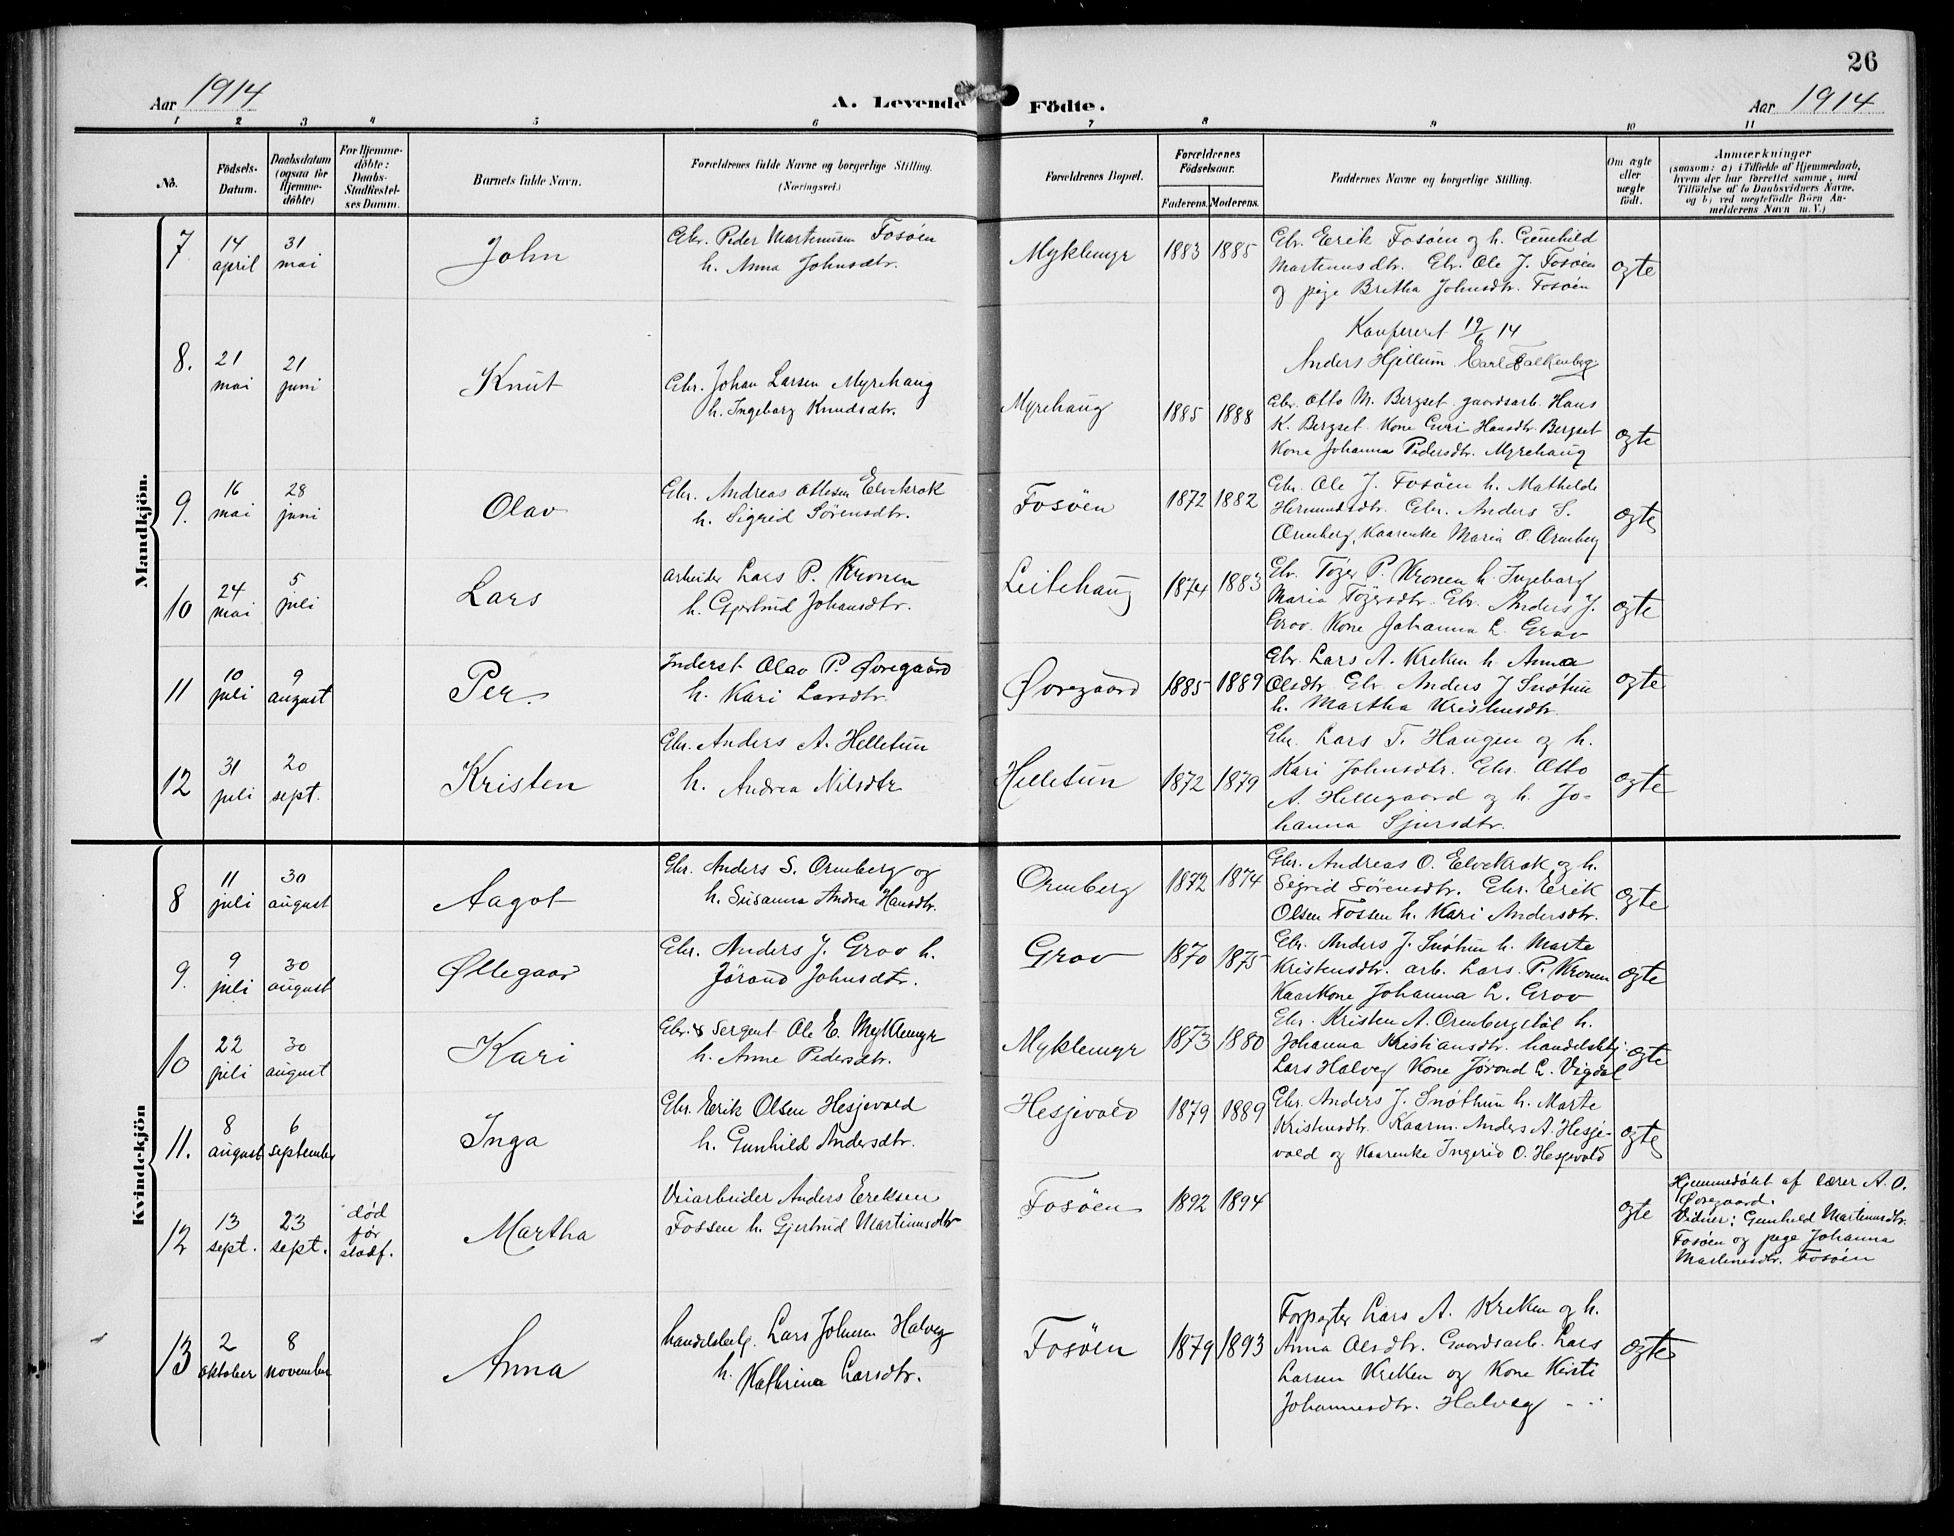 26
Aar 1914
A. Levende Födte.
Aar 1914
1 2 3 4 5 6 7 8 9 10 11
No.
Födsels-Datum.
Daabsdatum (ogsaa for Hjemme-döbte)
For Hjemme-döbte: Daabs-Stadfæstel-ses Datum.
Barnets fulde Navn.
Forældrenes fulde Navne og borgerlige Stilling. (Næringsvei.)
Forældrenes Bopæl.
Forældrenes Födselsaar.
Faderens. Moderens.
Faddernes Navne og borgerlige Stilling.
Om ægte eller uægte födt.
Anmærkninger
(saasom: a) i Tilfælde af Hjemmedaab, hvem der har forrettet samme, med Tilföielse af to Daabsvidners Navne, og b) ved uægtefödte Börn An-melderens Navn m. V.)
Mandkjön.
7 14 april 31 mai John
Gbr. Peder Martinusen Fosøen
h. Anna Johnsdtr.
Myklemyr 1883 1885
Gbr. Erik Fosøen og h. Gunhild
Martinusdtr. Gbr. Ole J. Fosøen
og pige Britha Johnsdtr. Fosøen
ægte
Konfereret 19/6 14
Anders Hjellum Carl Falkenberg
8. 21 mai 21 juni Knut
Gbr. Johan Larsen Myrehaug
h. Ingeborg Knudsdtr.
Myrehaug 1885 1888
Gbr. Otto M. Bergset gaardsarb. Hans
K. Bergset Kone Guri Hansdtr. Bergset
Kone Johanna Pedersdtr. Myrehaug
ægte
9. 16 mai 28 juni Olav
Gbr. Andreas Ottesen Elvekrok
h. Sigrid Sørensdtr.
Fosøen 1872 1882
Gbr. Ole J. Fosøen h. Mathilde
Hermundsdtr. Gbr. Anders S.
Ormberg, Kaarenke Maria O. Ormberg
ægte
10 24 mai 5 juli Lars
Arbeider Lars P. Kronen
h. Gjertrud Johansdtr.
Leitehaug 1874 1883
Gbr. Tøger P. Kronen h. Ingeborg
Maria Tøgersdtr. Gbr. Anders J.
Grov. Kone Johanna L. Grov
ægte
11 10 juli 9 august Per.
Inderst Olav P. Øvregaard
h. Kari Larsdtr.
Øvregaard 1885 1889
Gbr. Lars A. Kreken h. Anna
Olsdtr. Gbr. Anders J Snøtun
h. Martha Kristensdtr.
ægte
12 31 juli 20 sept. Kristen
Gbr. Anders A. Helletun
h. Andrea Nilsdtr
Helletun 1872 1879
Gbr. Lars T. Haugen og h.
Kari Johnsdtr. Gbr. Otto
A. Hellegaard og h. Jo-
hanna Sjursdtr.
ægte
Kvindekjön
8 11 juli 30 august Aagot
Gbr. Anders S. Ormberg og
h. Susanna Andrea Hansdtr.
Ormberg 1872 1874
Gbr. Andreas O. Elvekrok og h.
Sigrid Sørensdtr. Gbr. Erik
Olsen Fossen h. Kari Andersdtr.
ægte
9. 9 juli 30 august Øllegaar
Gbr. Anders J. Grov h.
Jørand Johnsdtr.
Grov 1870 1875
Gbr. Anders J. Snøtun h. Marte
Kristensdtr. arb. Lars P. Kronen
Kaarkone Johanna L. Grov
ægte
10 22 juli 30 august Kari
Gbr. & Sergent Ole E. Myklemyr
h. Anne Pedersdtr.
Myklemyr 1873 1880
Gbr. Kristen A. Ormbergstøl h.
Johanna Kristiansdtr. handelsbtj.
Lars Halveg Kone Jørond L. Vigdal
ægte
11. 8 august 6 september Inga
Gbr. Erik Olsen Hesjevold
h. Gunhild Andersdtr.
Hesjevold 1879 1889
Gbr. Anders J. Snøthun h. Marte
Kristensdtr. Kaarm. Anders A. Hesje-
vold og Kaarenke Ingerid O. Hesjevold
ægte
12 13 sept. 23 sept. død før stadf. Martha
Veiarbeider Anders Eriksen
Fossen h. Gjertrud Martinusdtr
Fosøen 1892 1894
ægte
Hjemmedøbt af lærer A. O.
Øvregaard.
Vidner: Gunhild Martinusdtr.
Fosøen og pige Johanna
Martinusdtr. Fosøen
13 2 oktober 8 november Anna
handelsbetj. Lars Johnsen Halveg
h. Kathrina Larsdtr.
Fosøen 1879 1893
Forpagter Lars A. Kreken og h.
Anna Olsdtr. Gaardsarb. Lars
Larsen Kreken og Kone Kirsti
Johannesdtr. Halveg
ægte